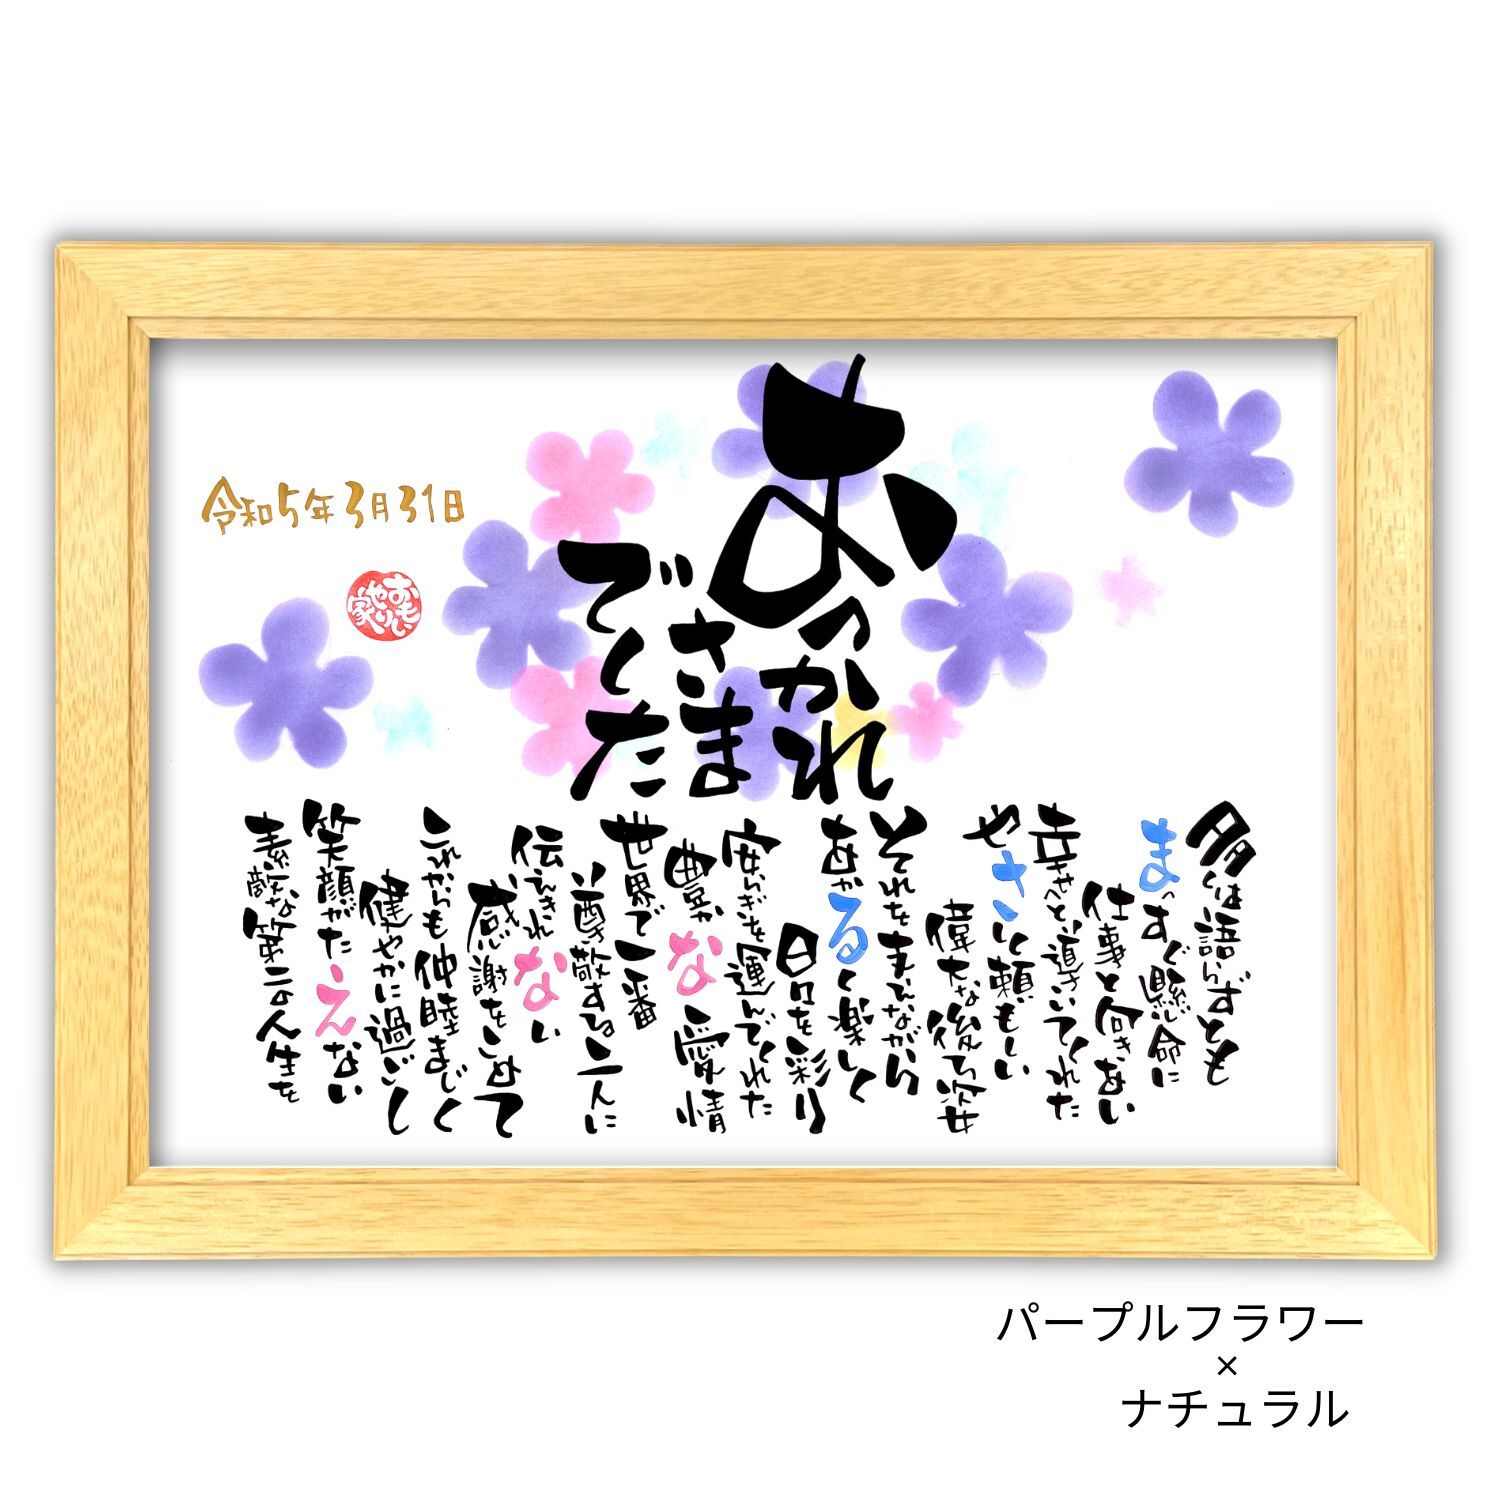 おつかれ
さま
でした
令和5年3月31日
おもい
やり
家
多くは語らずとも
まっすぐ懸命に
仕事と向きあい
幸せへと導きいてくれた
やさしく頼もしい
偉大な後ろ姿
それをまじえながら
あかるく楽しく
日々を彩り
安らぎを運んでくれた
豊かな愛情
世界で一番
尊敬する二人に
伝えきれない
感謝をこめて
これからも仲睦まじく
健やかに過ごし
笑顔がたえない
素敵な第二の人生を
パープルフラワー
×
ナチュラル